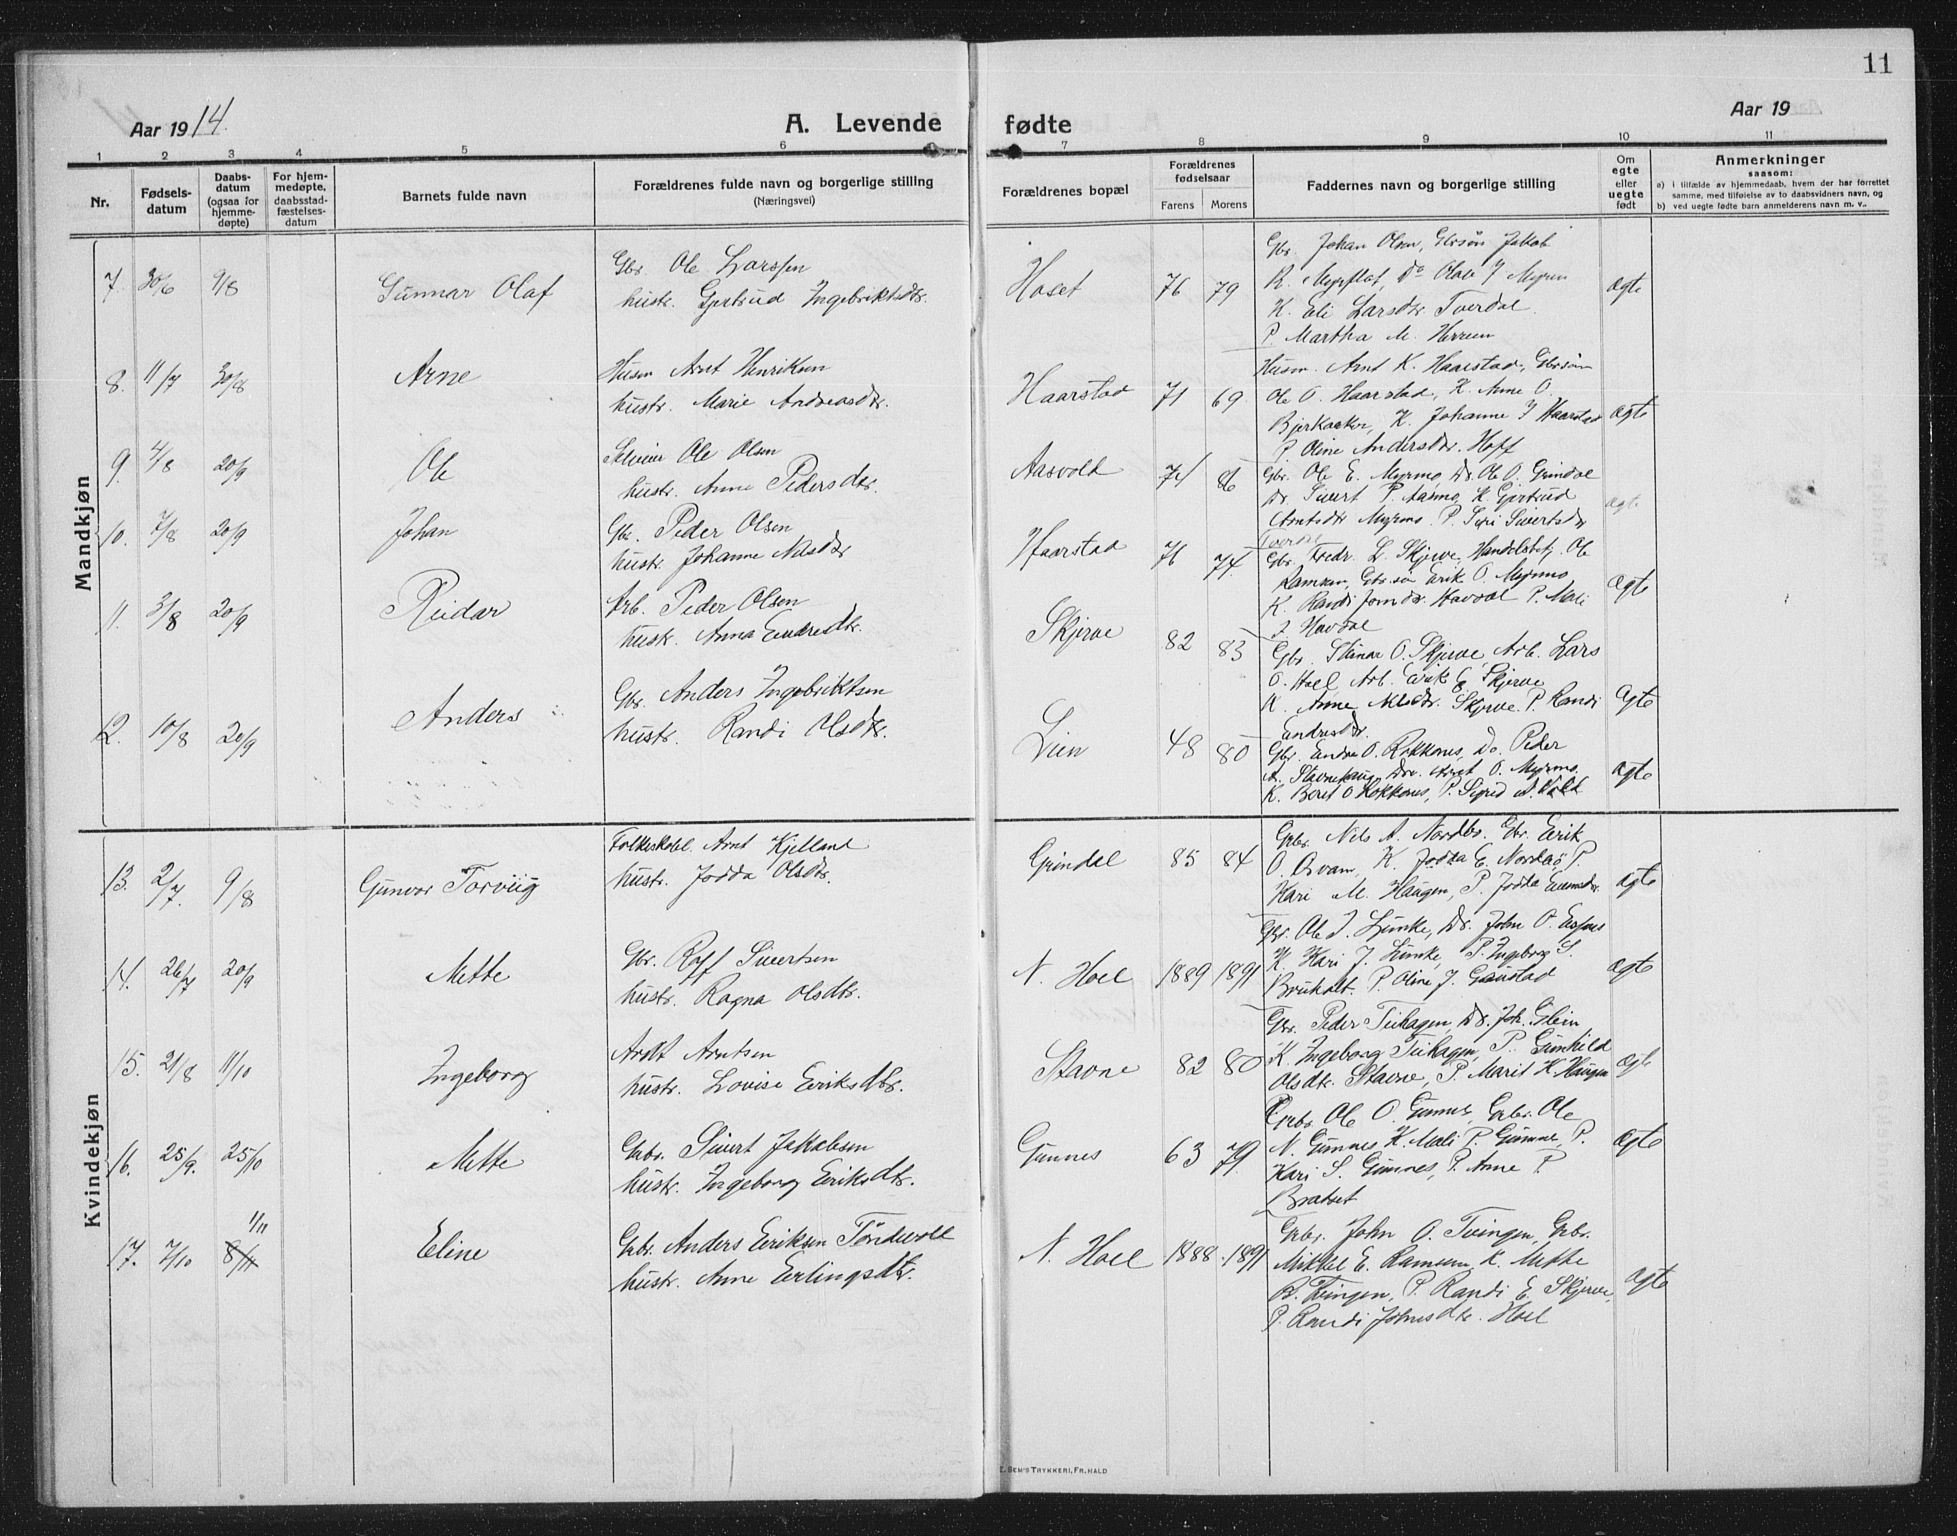 11
Aar 1914.
A. Levende
fødte
Aar 19
1 2 3 4 5 6 7 8 9 10 11
Nr.
Fødsels-
datum
Daabs-
datum
(ogsaa for
hjemme-
døpte)
For hjem-
medøpte,
daabsstad-
fæstelses-
datum
Barnets fulde navn
Forældrenes fulde navn og borgerlige stilling
(Næringsvei)
Forældrenes bopæl
Forældrenes
fødselsaar
Farens Morens
Faddernes navn og borgerlige stilling
Om
egte
eller
uegte
født
Anmerkninger
saasom:
a) i tilfælde av hjemmedaab, hvem der har forrettet
samme, med tilføielse av to daabsvidners navn, og
b) ved uegte fødte barn anmelderens navn m. v..
Mandkjøn
7 30/6 9/8 Gunnar Olaf
Gbr. Ole Larssen
hustr. Gjertrud Ingebriktsdtr.
Hoset 76 79
Gbr. Johan Olsen, Gbrsøn Jakob
R. Myrflat, Do Olav J Myren
K. Eli Larsdtr Tverdal
P. Martha M. Herrem
Ægte
8. 11/7 30/8 Arne
Husm Arnt Henriksen
hustr. Marie Andreasdtr.
Haarstad 71 69
Husm. Arnt K. Haarstad, Gbrsøn
Ole O. Haarstad, K. Anne O.
Bjerkaaker, K. Johanne J Haarstad
P. Oline Andersdtr. Hoff
Ægte
9. 4/8 20/9 Ole
Ole Olsen
hustr. Anne Pedersdtr.
Aasvold 74 86
Gbr. Ole E. Myrmo, Do. Ole O. Grindal
Do. Sivert P. Aasmo, K Gjertrud
Arntsdtr Myrmo. P. Siri Sivertsdtr
Ægte
10. 7/8 20/9 Johan
Gbr. Peder Olsen
hustr. Johanne Nilsdtr
Haarstad 71 74.
Gbr. Fredr. L. Skjerve, Handelsbetj. Ole
Ramsem, Gbr.søn Erik O. Myrmo
K. Randi Jonsdtr. Havdal P. Mali
J. Havdal
Ægte
11. 3/8 20/9 Reidar
Arb. Peder Olsen
hustr. Anna Endresdtr.
Skjerve 82 83
Gbr. Steinar O. Skjerve, Arb. Lars
O. Hoel, Arb. Erik E. Skjerve
K. Anne Nilsdtr. Skjerve P. Randi
Endresdtr.
Ægte
12. 10/8 20/9 Anders
Gbr. Anders Ingebriktsen
hustr. Randi Olsdtr.
Lien 48 80
Gbr. Endre O. Rokkones, Do. Peder
A. Stavnehaug, Do. Arnt O. Myrmo.
K. Beret O Rokkones, P. Sigrid A.
Ægte
Kvindekjøn
13. 2/7. 9/8 Gunvor Torviig
Folkeskolel. Arnt Kjelland
hustr. Jodda Olsdtr.
Grindal 85 84
Gbr. Nils A. Nordbø. Gbr. Eirik
O. Osvam, K. Jodda E. Nordbø P.
Kari M. Haugen, P. Jodda
Ægte
14. 26/7 20/9 Mette
Gbr. Rolf Sivertsen
hustr. Ragna Olsdtr.
N. Hoel 1889 1891
Gbr. Ole J. Limke, Do. John O. Espnes
K. Kari J. Limke, P. Ingeborg S.
P. Oline J. Gaustad
Ægte
15. 21/8 11/10 Ingeborg
Arntsen
hustr. Lovise Eriksdtr.
Stavne 82 80
Gbr. Peder Teihagen, Do. Joh. Glein
K Ingeborg Teihagen, P. Gunhild
Olsdtr. Stavne, P. Marit K. Haugen
Ægte
16. 25/9. 25/10 Mette
Grbr. Sivert Jakobsen
hustr. Ingeborg Eriksdtr.
Gunnes 63 79
Grbr. Ole O. Gunnes, Grbr. Ole
N. Gunnes K. Mali P. Gunnes, P.
Kari S. Gunnes, P. Anne P.
Bratset
Ægte
1/11
17. 7/10 8/11 Eline
Grbr. Anders Eriksen Tøndevold
hustr. Anne Erlingsdtr.
N. Hoel 1888 1891
Grbr. John O. Tvingen, Grbr.
Mikkel E. Ramsem K. Mette
B. Tvingen, P. Randi E. Skjerve,
P. Randi Johnsdtr. Hoel
Ægte
E. SEM'S TRYKKERI, FR.HALD